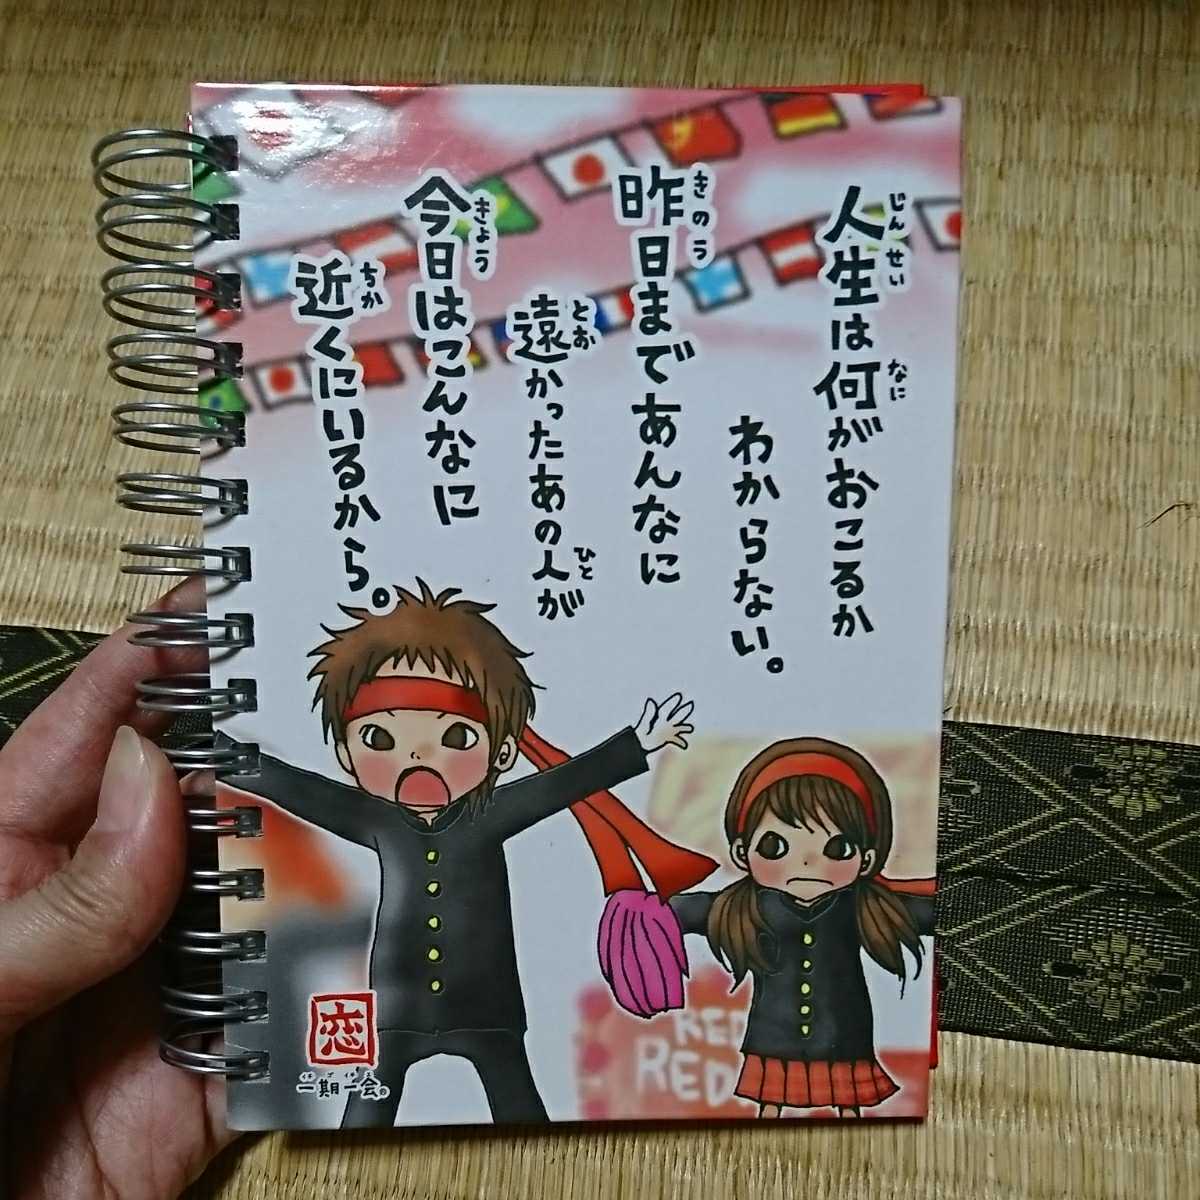 人生は何がおこるか
わからない。
昨日まであんなに
遠かったあの人が
今日はこんなに
近くにいるから。
じんせい
なに
きのう
とお
ひと
きょう
ちか
恋
一期一会
イチゴイチエ
RED
RED